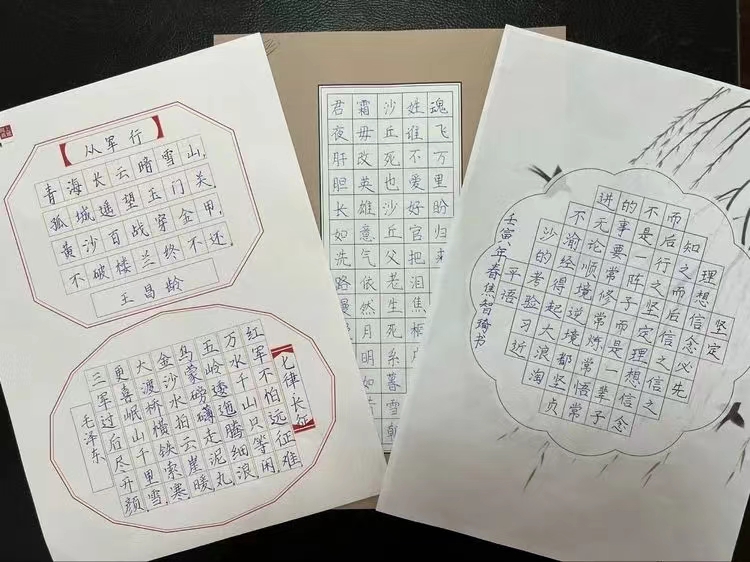 从军行
青海长云暗雪山,
孤城遥望玉门关.
黄沙百战穿金甲,
不破楼兰终不还.
王昌龄
七律长征
红军不怕远征难
万水千山只等闲
五岭逶迤腾细浪
乌蒙磅礴走泥丸
金沙水拍云崖暖
大渡桥横铁索寒
更喜岷山千里雪
三军过后尽开颜
毛泽东
魂飞万里盼归来
姓谁不爱好官把泪焦桐
沙丘死也沙丘父老生死系暮雪朝
霜毋改英雄意气依然月明如
君夜肝胆长如洗路漫
坚定
理想信念必先
知之而后信之信之
而后行之坚定理想信念
不是一阵子而是一辈子
的事要常修常炼常悟常
进无论顺境逆境都坚贞
不渝经得起大浪淘
沙的考验习近
平语
壬寅年春焦智琦书